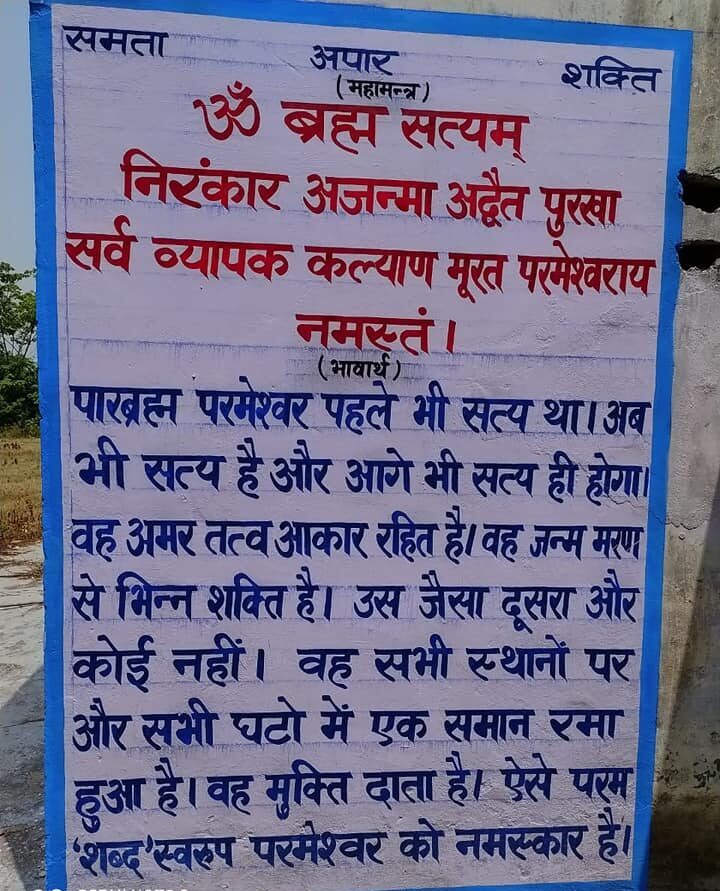 समता अपार शक्ति
(महामन्त्र)
ॐ ब्रह्म सत्यम्
निरंकार अजन्मा अद्वैत पुरखा
सर्व व्यापक कल्याण मूरत परमेश्वराय
नमस्तं।
(भावार्थ)
पारब्रह्म परमेश्वर पहले भी सत्य था। अब
भी सत्य है और आगे भी सत्य ही होगा।
वह अमर तत्व आकार रहित है। वह जन्म मरण
से भिन्न शक्ति है। उस जैसा दूसरा और
कोई नहीं। वह सभी स्थानों पर
और सभी घटो में एक समान रमा
हुआ है। वह मुक्ति दाता है। ऐसे परम
'शब्द' स्वरुप परमेश्वर को नमस्कार है।